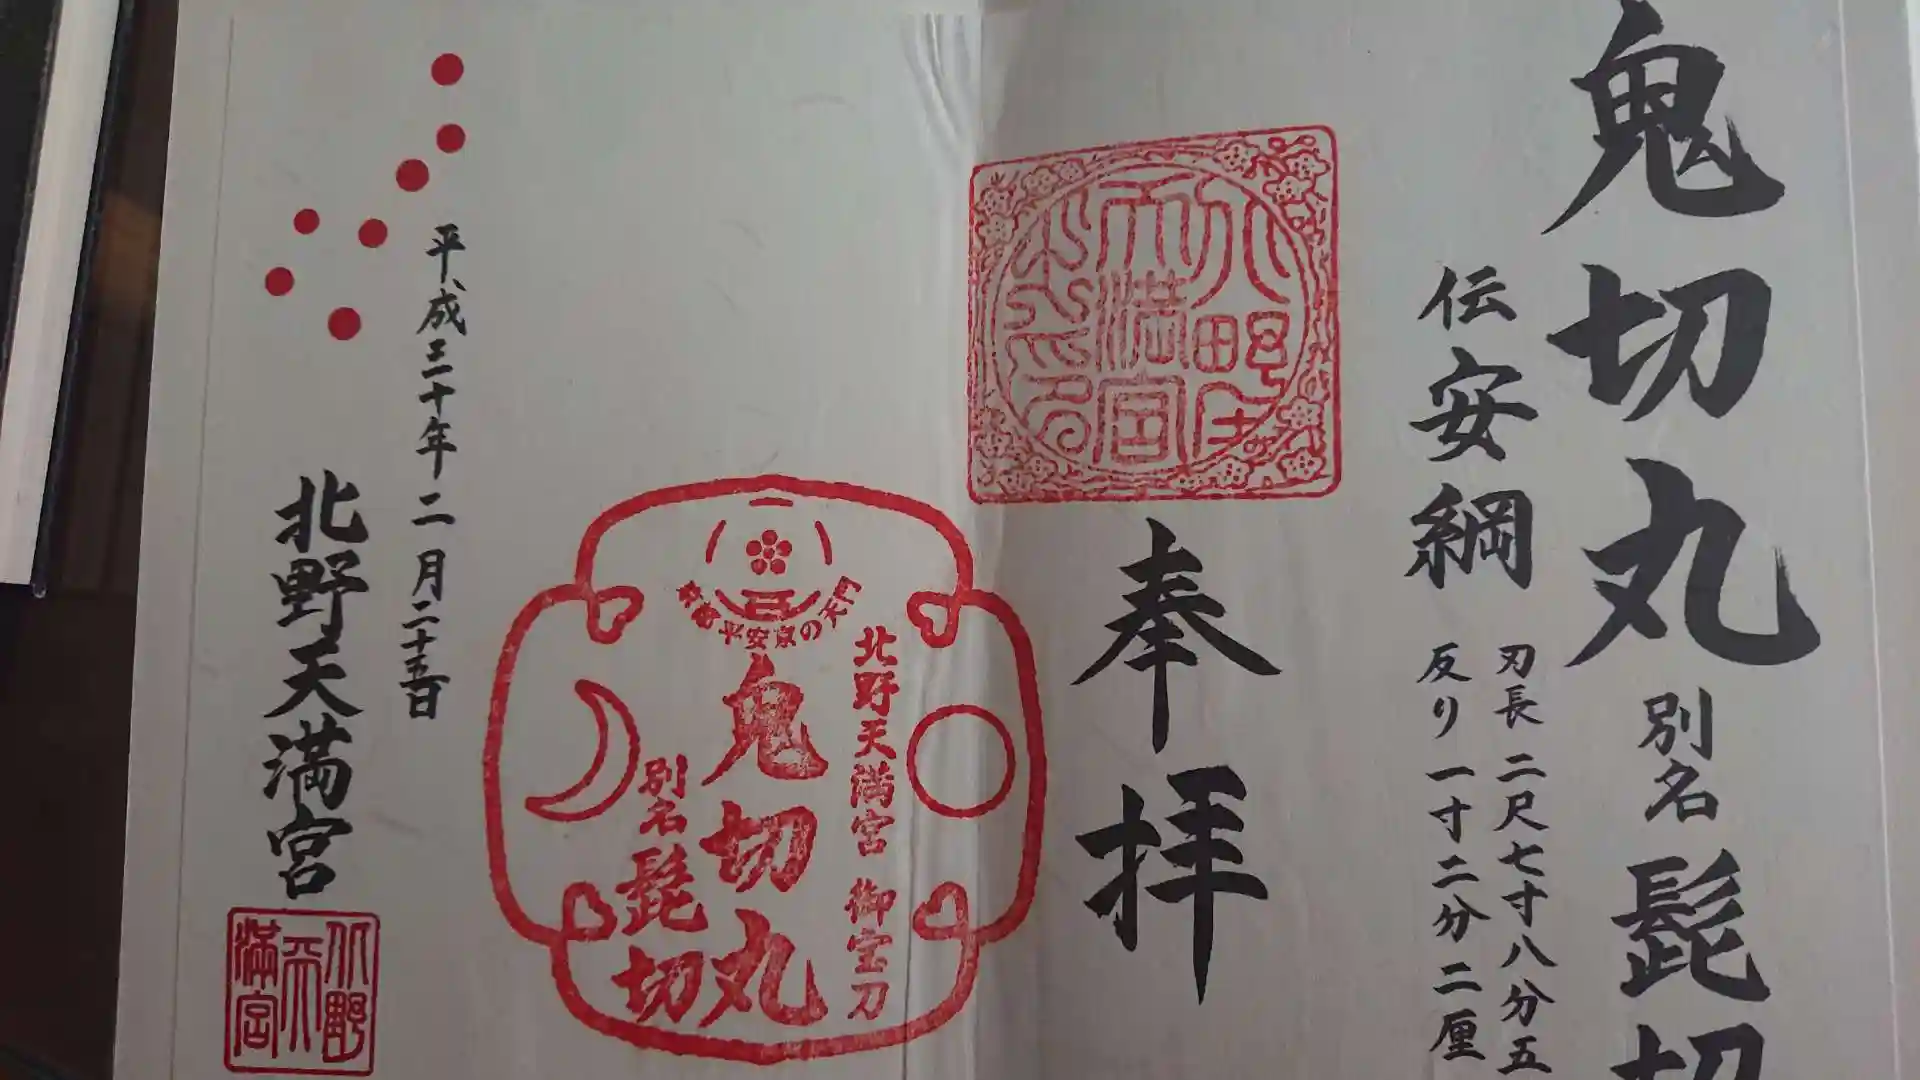 鬼切丸 別名 髭切
伝 安綱
刃長 二尺七寸八分五
反り 一寸二分二厘
奉拝
北野天満宮 御宝刀
平安京の天門
鬼切丸
別名 髭切
平成三十年 二月二十五日
北野天満宮
北野天満宮